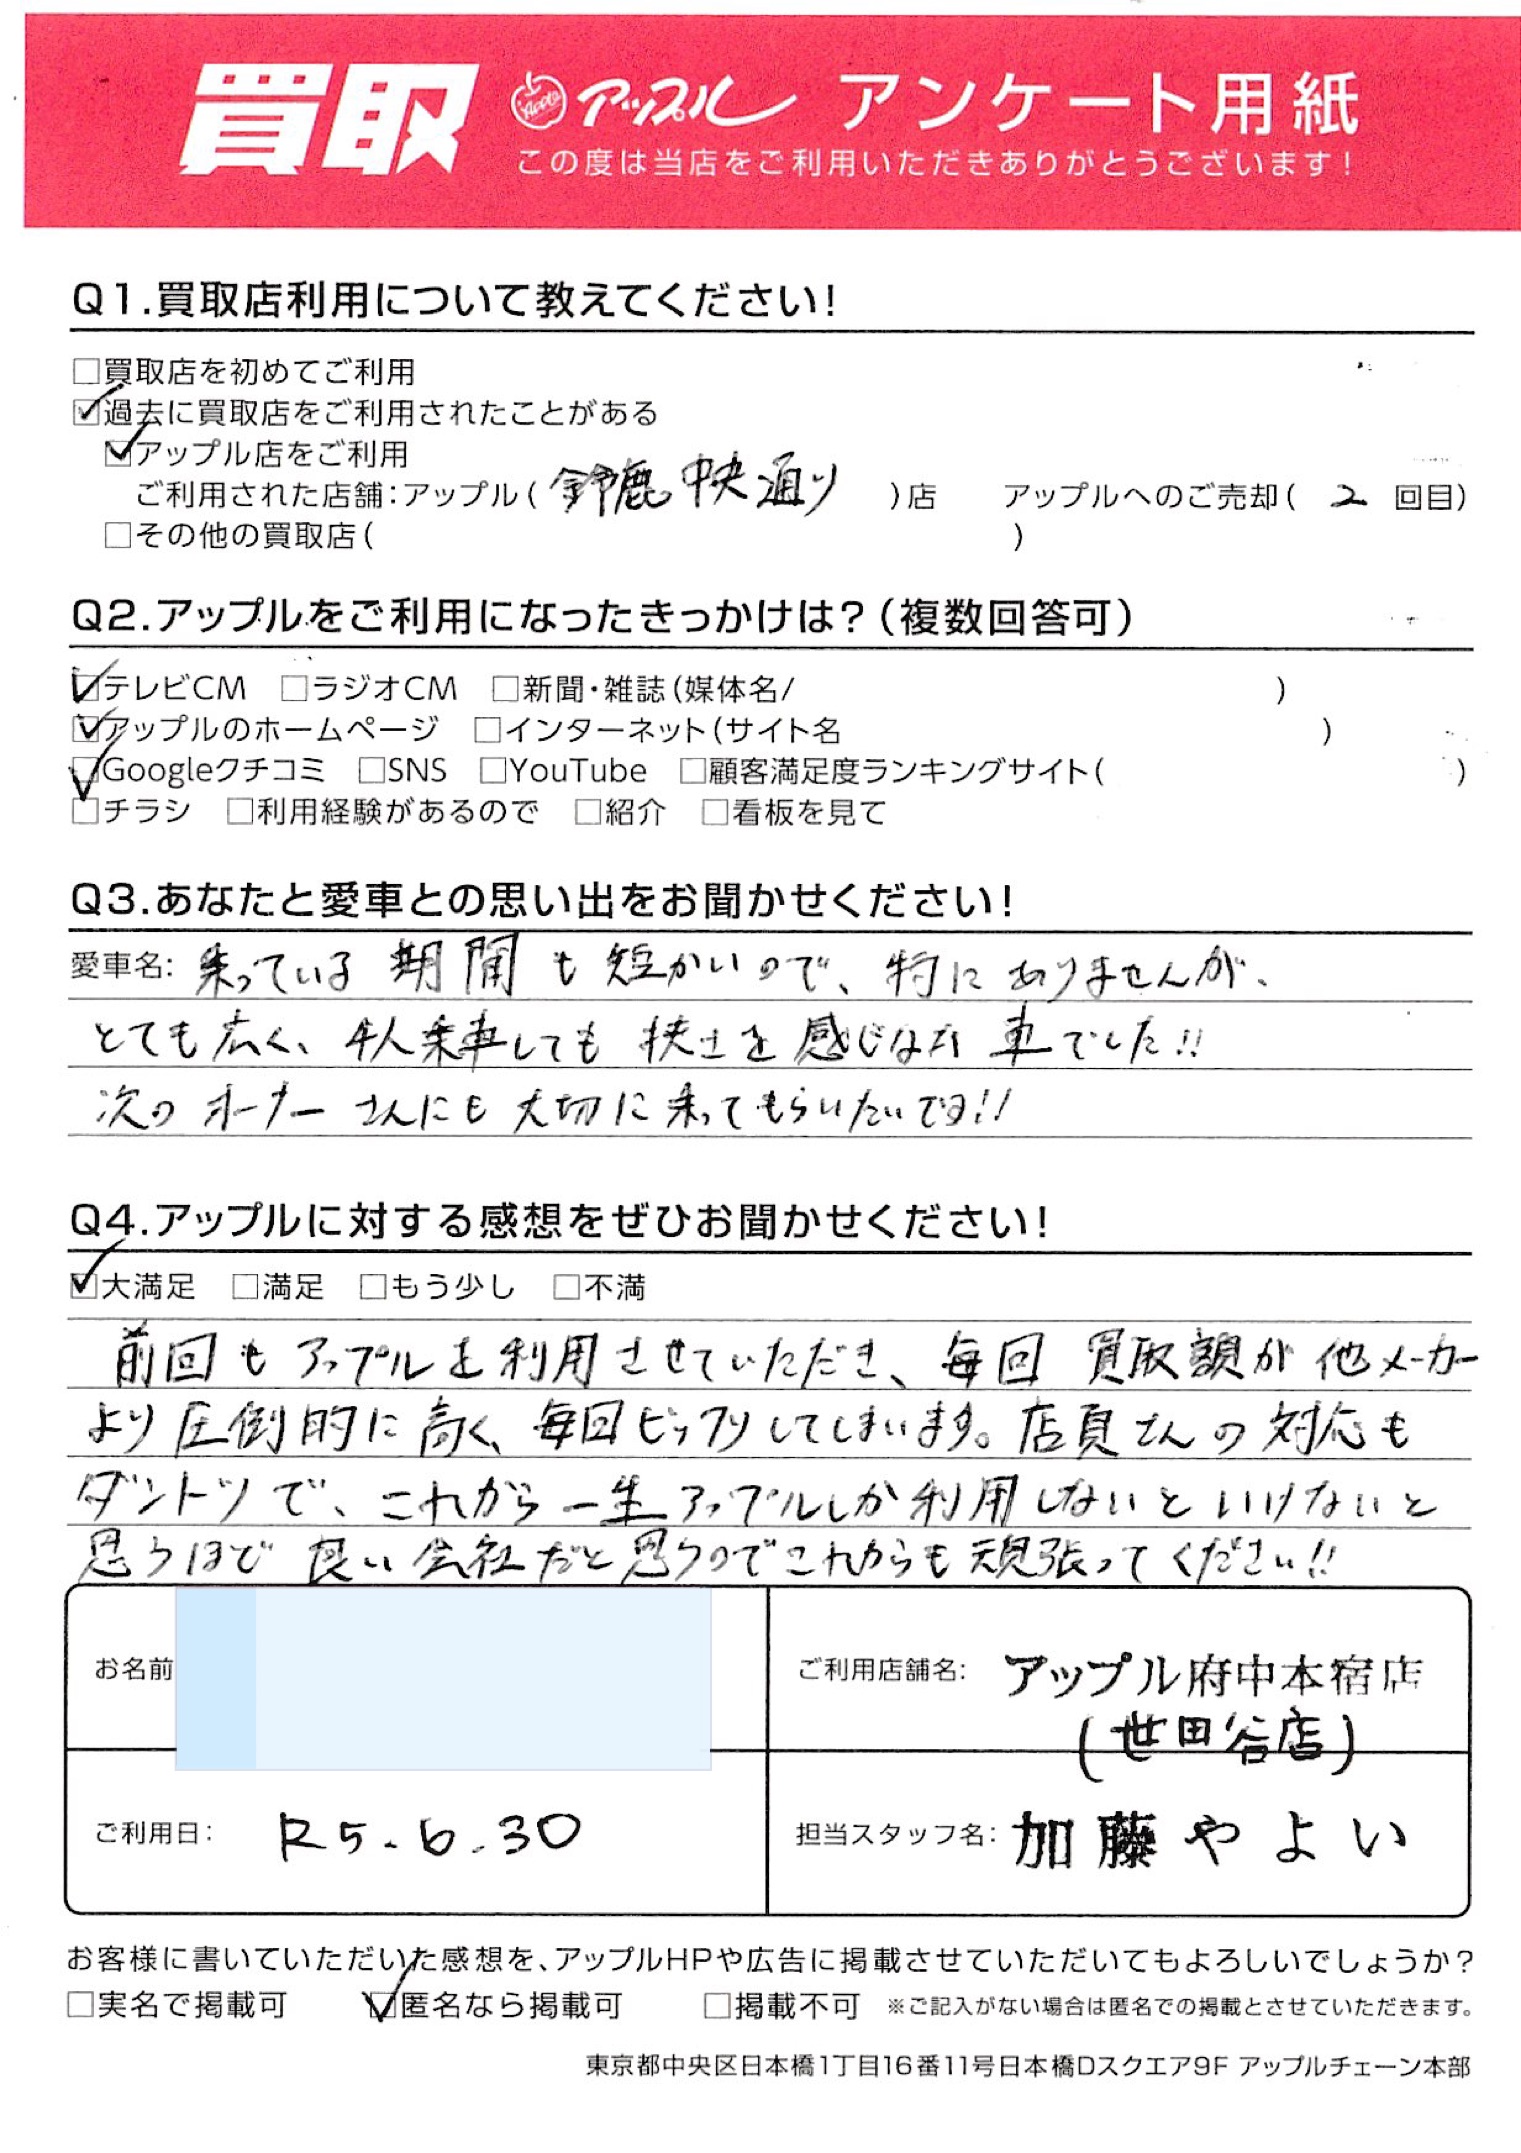 買取 アップル アンケート用紙
この度は当店をご利用いただきありがとうございます!
Q1.買取店利用について教えてください!
□買取店を初めてご利用
☑過去に買取店をご利用されたことがある
☑アップル店をご利用
ご利用された店舗:アップル(鈴鹿中央通り)店 アップルへのご売却(2回目)
□その他の買取店( )
Q2.アップルをご利用になったきっかけは?(複数回答可)
☑テレビCM □ラジオCM □新聞・雑誌(媒体名/ )
☑アップルのホームページ □インターネット(サイト名 )
☑Googleクチコミ □SNS □YouTube □顧客満足度ランキングサイト( )
□チラシ □利用経験があるので □紹介 □看板を見て
Q3.あなたと愛車との思い出をお聞かせください!
愛車名: 乗っている期間も短かいので、特にありませんが、
とても広く、4人乗車しても狭さを感じない車でした!!
次のオーナーさんにも大切に乗ってもらいたいです!!
Q4.アップルに対する感想をぜひお聞かせください!
☑大満足 □満足 □もう少し □不満
前回もアップルを利用させていただき、毎回買取額が他メーカー
より圧倒的に高く、毎回ビックリしてしまいます。店員さんの対応も
ダントツで、これから一生アップルしか利用しないといけないと
思うほど良い会社だと思うのでこれからも頑張ってください!!
お名前
ご利用店舗名: アップル府中本宿店
(世田谷店)
ご利用日: R5.6.30
担当スタッフ名: 加藤やよい
お客様に書いていただいた感想を、アップルHPや広告に掲載させていただいてもよろしいでしょうか?
□実名で掲載可 ☑匿名なら掲載可 □掲載不可 ※ご記入がない場合は匿名での掲載とさせていただきます。
東京都中央区日本橋1丁目16番11号日本橋Dスクエア9F アップルチェーン本部